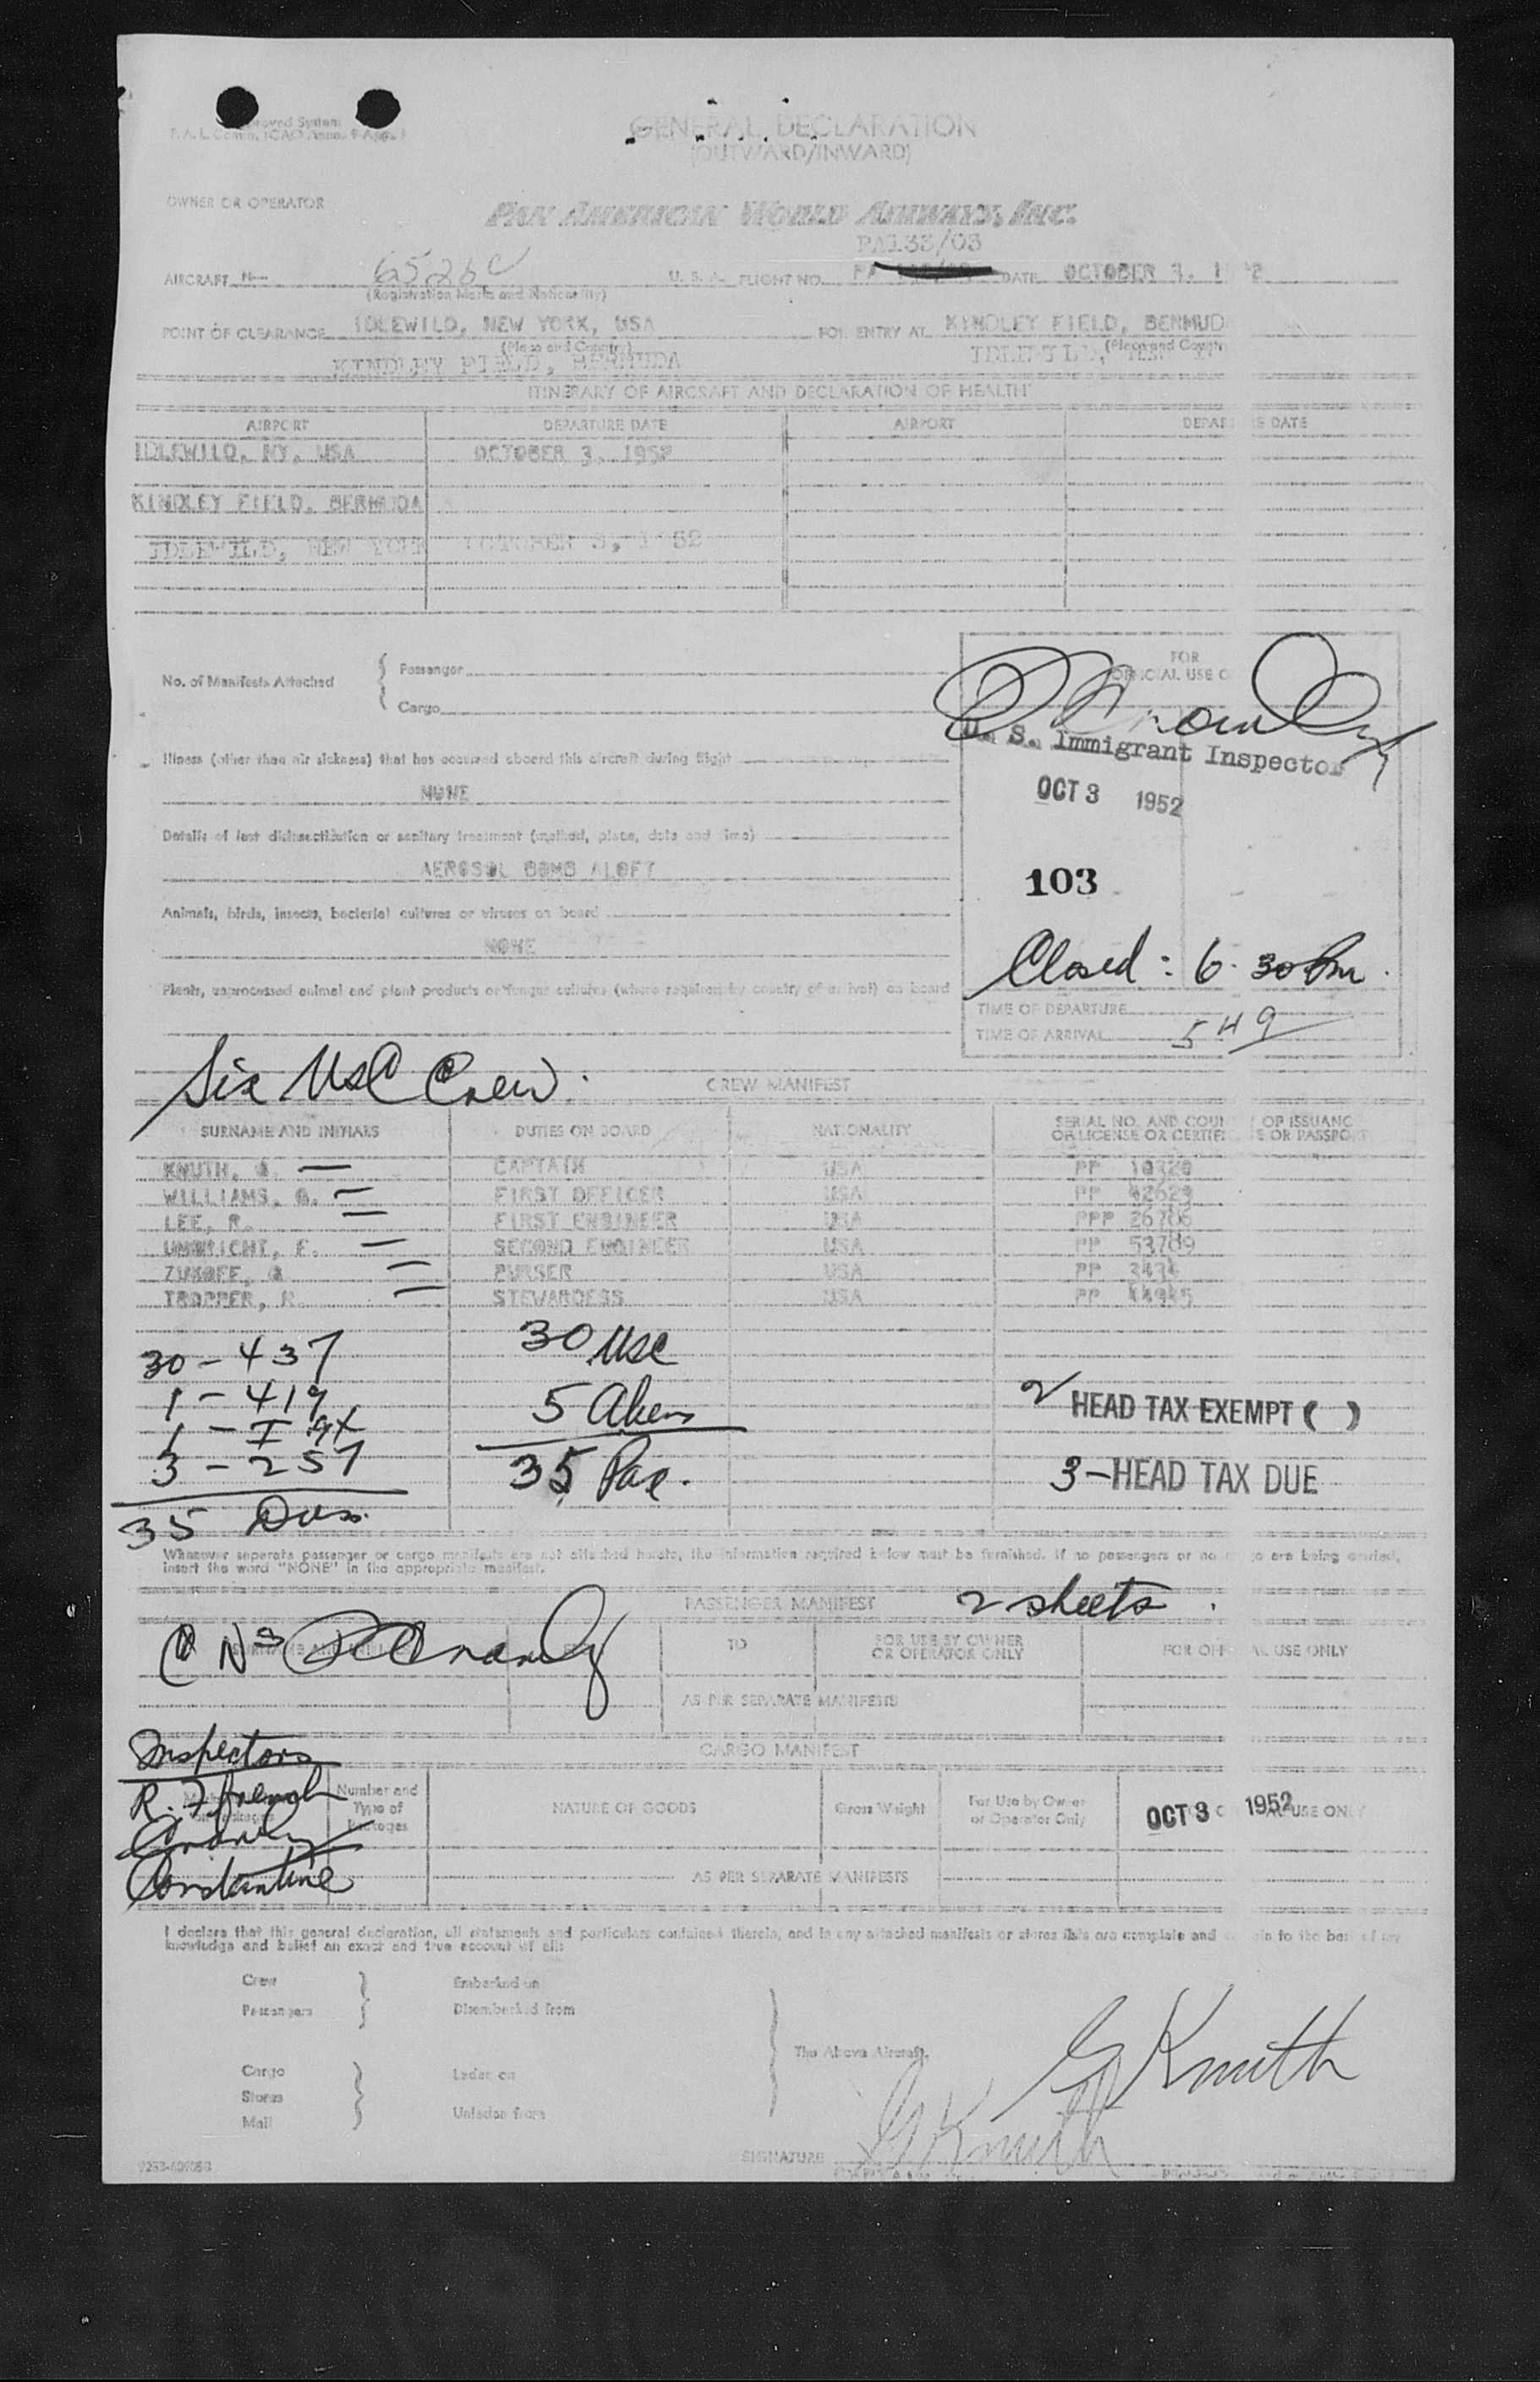 GENERAL DECLARATION
(OUTWARD/INWARD)
OWNER OR OPERATOR PAN AMERICAN WORLD AIRWAYS, INC.
PA133/03
AIRCRAFT N- 6526C U. S. A. FLIGHT NO. DATE OCTOBER 3, 1952
(Registration Marks and Nationality)
POINT OF CLEARANCE IDLEWILD, NEW YORK, USA FOR ENTRY AT KINDLEY FIELD, BERMUDA
(Place and Country) (Place and Country)
KINDLEY FIELD, BERMUDA IDLEWILD,
ITINERARY OF AIRCRAFT AND DECLARATION OF HEALTH
AIRPORT DEPARTURE DATE AIRPORT DEPARTURE DATE
IDLEWILD, NY, USA OCTOBER 3, 1952
KINDLEY FIELD, BERMUDA
IDLEWILD, NEW YORK OCTOBER 3, 1952
FOR
OFFICIAL USE O
No. of Manifests Attached { Passenger
{ Cargo
U. S. Immigrant Inspector
Illness (other than air sickness) that has occurred aboard this aircraft during flight
NONE
OCT 3 1952
Details of last disinsectization or sanitary treatment (method, place, date and time)
AEROSOL BOMB ALOFT
103
Animals, birds, insects, bacterial cultures or viruses on board
NONE
Closed : 6.30 Pm.
Plants, unprocessed animal and plant products or fungus cultures (where required by country of arrival) on board
TIME OF DEPARTURE
TIME OF ARRIVAL 549
Six USC Crew.
CREW MANIFEST
SURNAME AND INITIALS DUTIES ON BOARD NATIONALITY SERIAL NO. AND COUN OF ISSUANC
OF LICENSE OR CERTIFI E OR PASSPORT
KNUTH, G. — CAPTAIN USA PP 10320
WILLIAMS, G. — FIRST OFFICER USA PP 42629
LEE, R. — FIRST ENGINEER USA PPP 26706
UMBRICHT, F. — SECOND ENGINEER USA PP 53789
ZUKOFF, — PURSER USA PP
TROPPER, R. — STEWARDESS USA PP
30 - 437 30 USC
1 - 419 5 Aliens
1 - I 94 35 Pax.
3 - 257
35
2 HEAD TAX EXEMPT ( )
3 - HEAD TAX DUE
Whenever separate passenger or cargo manifests are not attached hereto, the information required below must be furnished. If no passengers or no go are being carried,
insert the word "NONE" in the appropriate manifest.
PASSENGER MANIFEST 2 sheets.
TO FOR USE BY OWNER
OR OPERATOR ONLY FOR OFF AL USE ONLY
AS PER SEPARATE MANIFESTS
CARGO MANIFEST
Inspectors
Number and
Type of
Packages NATURE OF GOODS Gross Weight For Use by Owner
or Operator Only
OCT 3 1952 USE ONLY
Constantine
AS PER SEPARATE MANIFESTS
I declare that this general declaration, all statements and particulars contained therein, and in any attached manifests or stores lists are complete and to the best of my
knowledge and belief an exact and true account of all:
Crew } Embarked on
Passengers } Disembarked from
The Above Aircraft.
Cargo } Laden on
Stores
Mail } Unladen from
G Knuth
SIGNATURE G Knuth